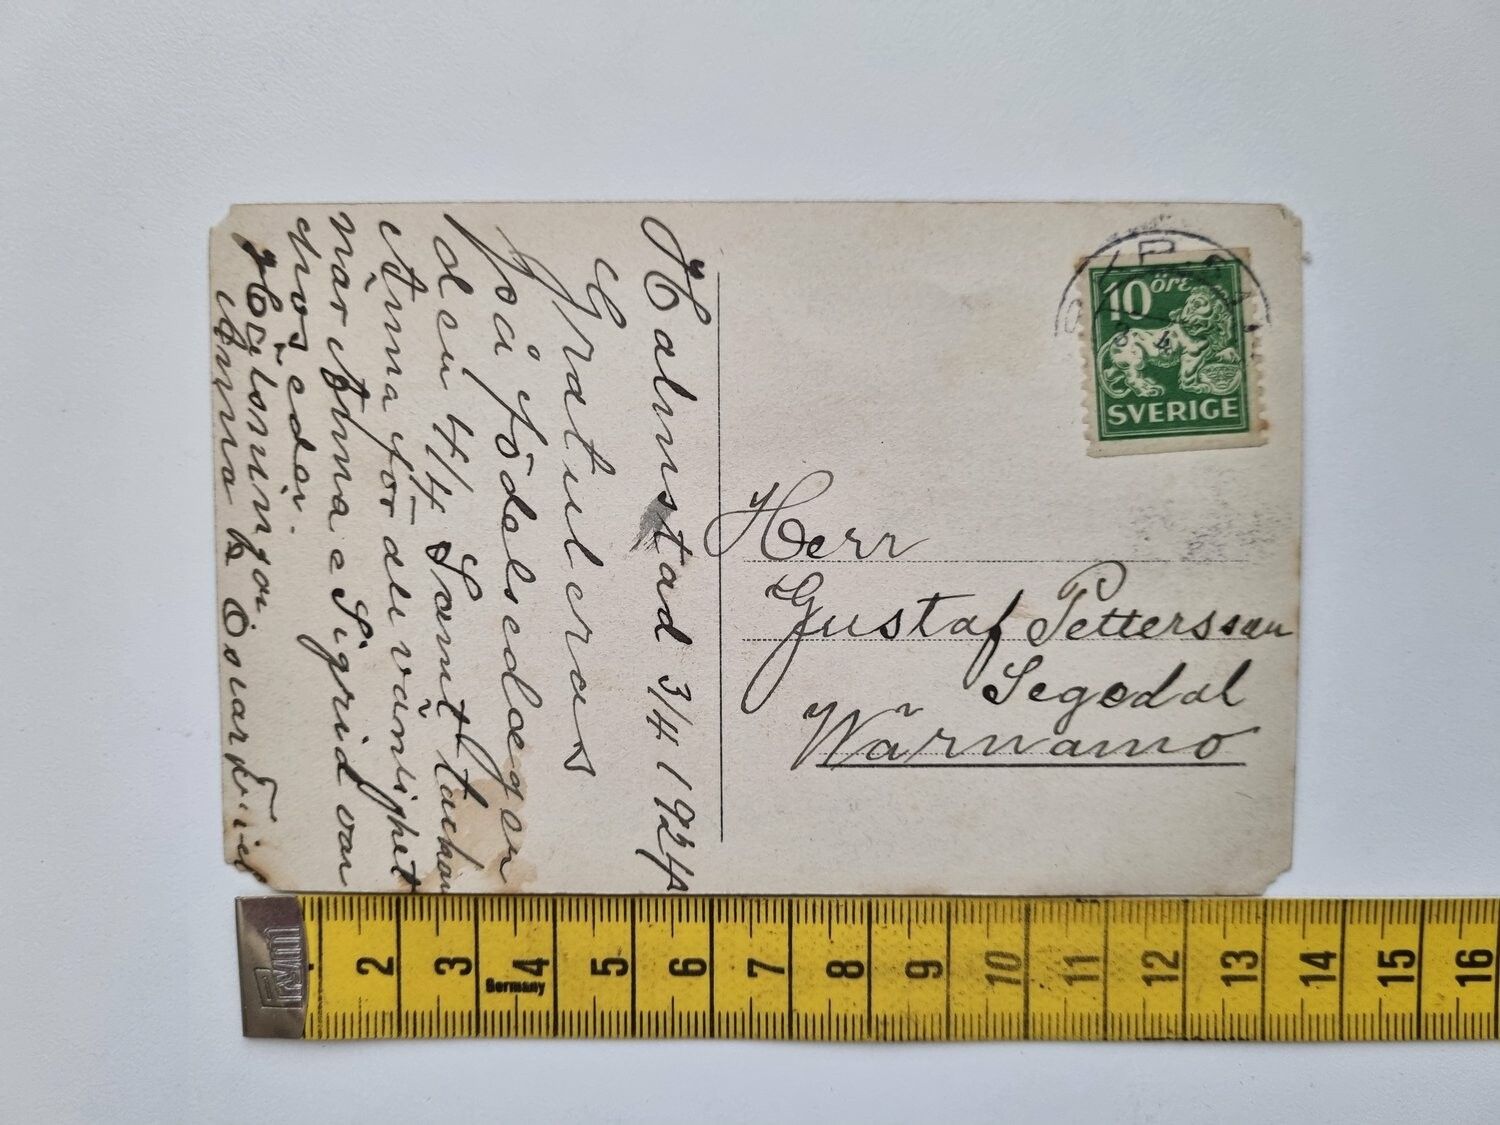 Halmstad 3/4 1924
Gratuleras
på födelsedagen
den 4/4 Samt tackar
Anna för all vänlighet
när Anna o Sigrid var
hos eder.
Hälsningar
Anna Oskar
10 öre
3 4
SVERIGE
Herr
Gustaf Pettersson
Segedal
Wärnamo
2 3 4 5 6 7 8 9 10 11 12 13 14 15 16
Germany